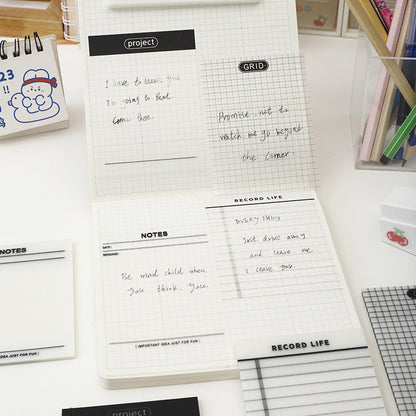 project
I have to leave you
I'm going to that
come there.
GRID
Promise not to
watch me go beyond
the corner.
23
!!
NOTES
DATE:
MESSAGE:
Be mad child when
you think. You.
( IMPORTANT IDEA JUST FOR FUN )
RECORD LIFE
Just drive away
and leave me.
I leave you.
NOTES
IDEA JUST FOR FUN )
RECORD LIFE
project